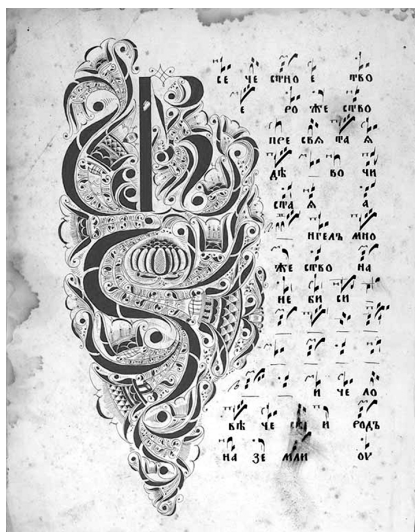 СЕ ЧЕ СТНО Е ТВО
Е РО ЖЕ СТВО
ПРЕ СВѦ ТА Ѧ
ДѢ ВО ЧИ
СТА Ѧ А
НГЕЛЪ МНО
ЖЕ СТВО НА
НЕ БИ СИ
И ЧЕ ЛО
ВѢ ЧЕ И РОДЪ
НА ЗЕ МЛИ ОУ